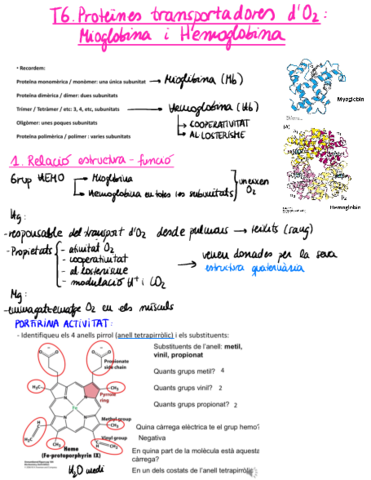 T6. Proteïnes transportadores d'O2:
Mioglobina i Hemoglobina
• Recordem:
Proteïna monomèrica / monòmer: una única subunitat → Mioglobina (Mb)
Proteïna dimèrica / dímer: dues subunitats
Trímer / Tetràmer / etc: 3, 4, etc, subunitats → Hemoglobina (Hb)
Oligòmer: unes poques subunitats
→ COOPERATIVITAT
Proteïna polimèrica / polímer: varies subunitats
→ AL·LOSTERISME
Myoglobin
Hemoglobin
1. Relació estructura - funció
Grup HEMO → Mioglobina
→ Hemoglobina en totes les subunitats
uneixen O2
Hg:
- responsable del transport d'O2 desde pulmons → teixits (sang)
- Propietats - afinitat O2
- cooperativitat
- al·losterisme
- modulació H+ i CO2
→ venen donades per la seva
estructura quaternària
Mg:
- emmagatzematge O2 en els músculs
PORFIRINA ACTIVITAT:
- Identifiqueu els 4 anells pirrol (anell tetrapirròlic) i els substituents:
Substituents de l'anell: metil,
vinil, propionat
Quants grups metil? 4
Quants grups vinil? 2
Quants grups propionat? 2
Quina càrrega elèctrica te el grup hemo?
Negativa
En quina part de la molècula està aquesta
càrrega?
En un dels costats de l'anell tetrapirròlic
Propionate
side chain
Pyrrole
ring
Methyl group
Vinyl group
H3C
CH3
Fe
Heme
(Fe-protoporphyrin IX)